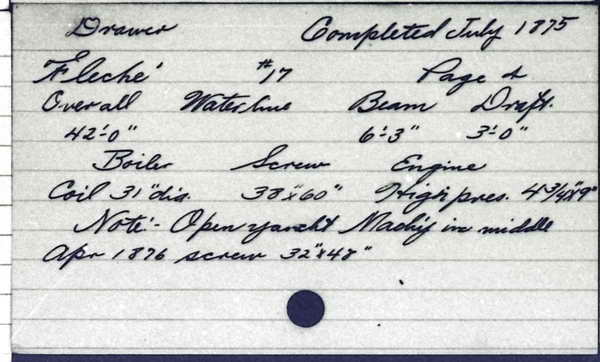 Drawer Completed July 1875
Fleché #17 Page 2
Over all Waterline Beam Draft.
42'-0" 6'-3" 3'-0"
Boiler Screw Engine
Coil 31"dia. 38"x60" High pres. 4 3/4"x9"
Note:- Open yacht Mach'y in middle
Apr 1876 screw 32"x48"